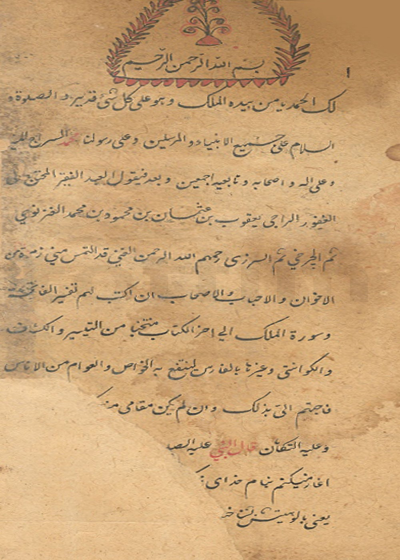 بسم الله الرحمن الرحیم
لک الحمد یا من بیده الملک و هو علی کل شئ قدیر و الصلوة و
السلام علی جمیع الانبیاء و المرسلین و علی رسولنا محمد
و علی اله و اصحابه و تابعیه اجمعین و بعد فیقول العبد الفقیر المحتاج
الغفور الراجی یعقوب بن عثمان بن محمود بن محمد الغزنوی
ثم الچرخی ثم السرزی رحمهم الله الرحمن الغنی قد التمس منی زمرة من
الاخوان و الاحباب و الاصحاب ان اکتب لهم تفسیر الفاتحة
و سورة الملک الی اخر الکتاب منتخبا من التیسیر و الکشاف
و الکواشی و غیرها بالفارس لینتفع به الخواص و العوام من الاناس
فاجبتهم الی بذلک و ان لم یکن مقامی
و علیه التکلان قال النبی علیه
اغاز میکنم بنام خدای
یعنی